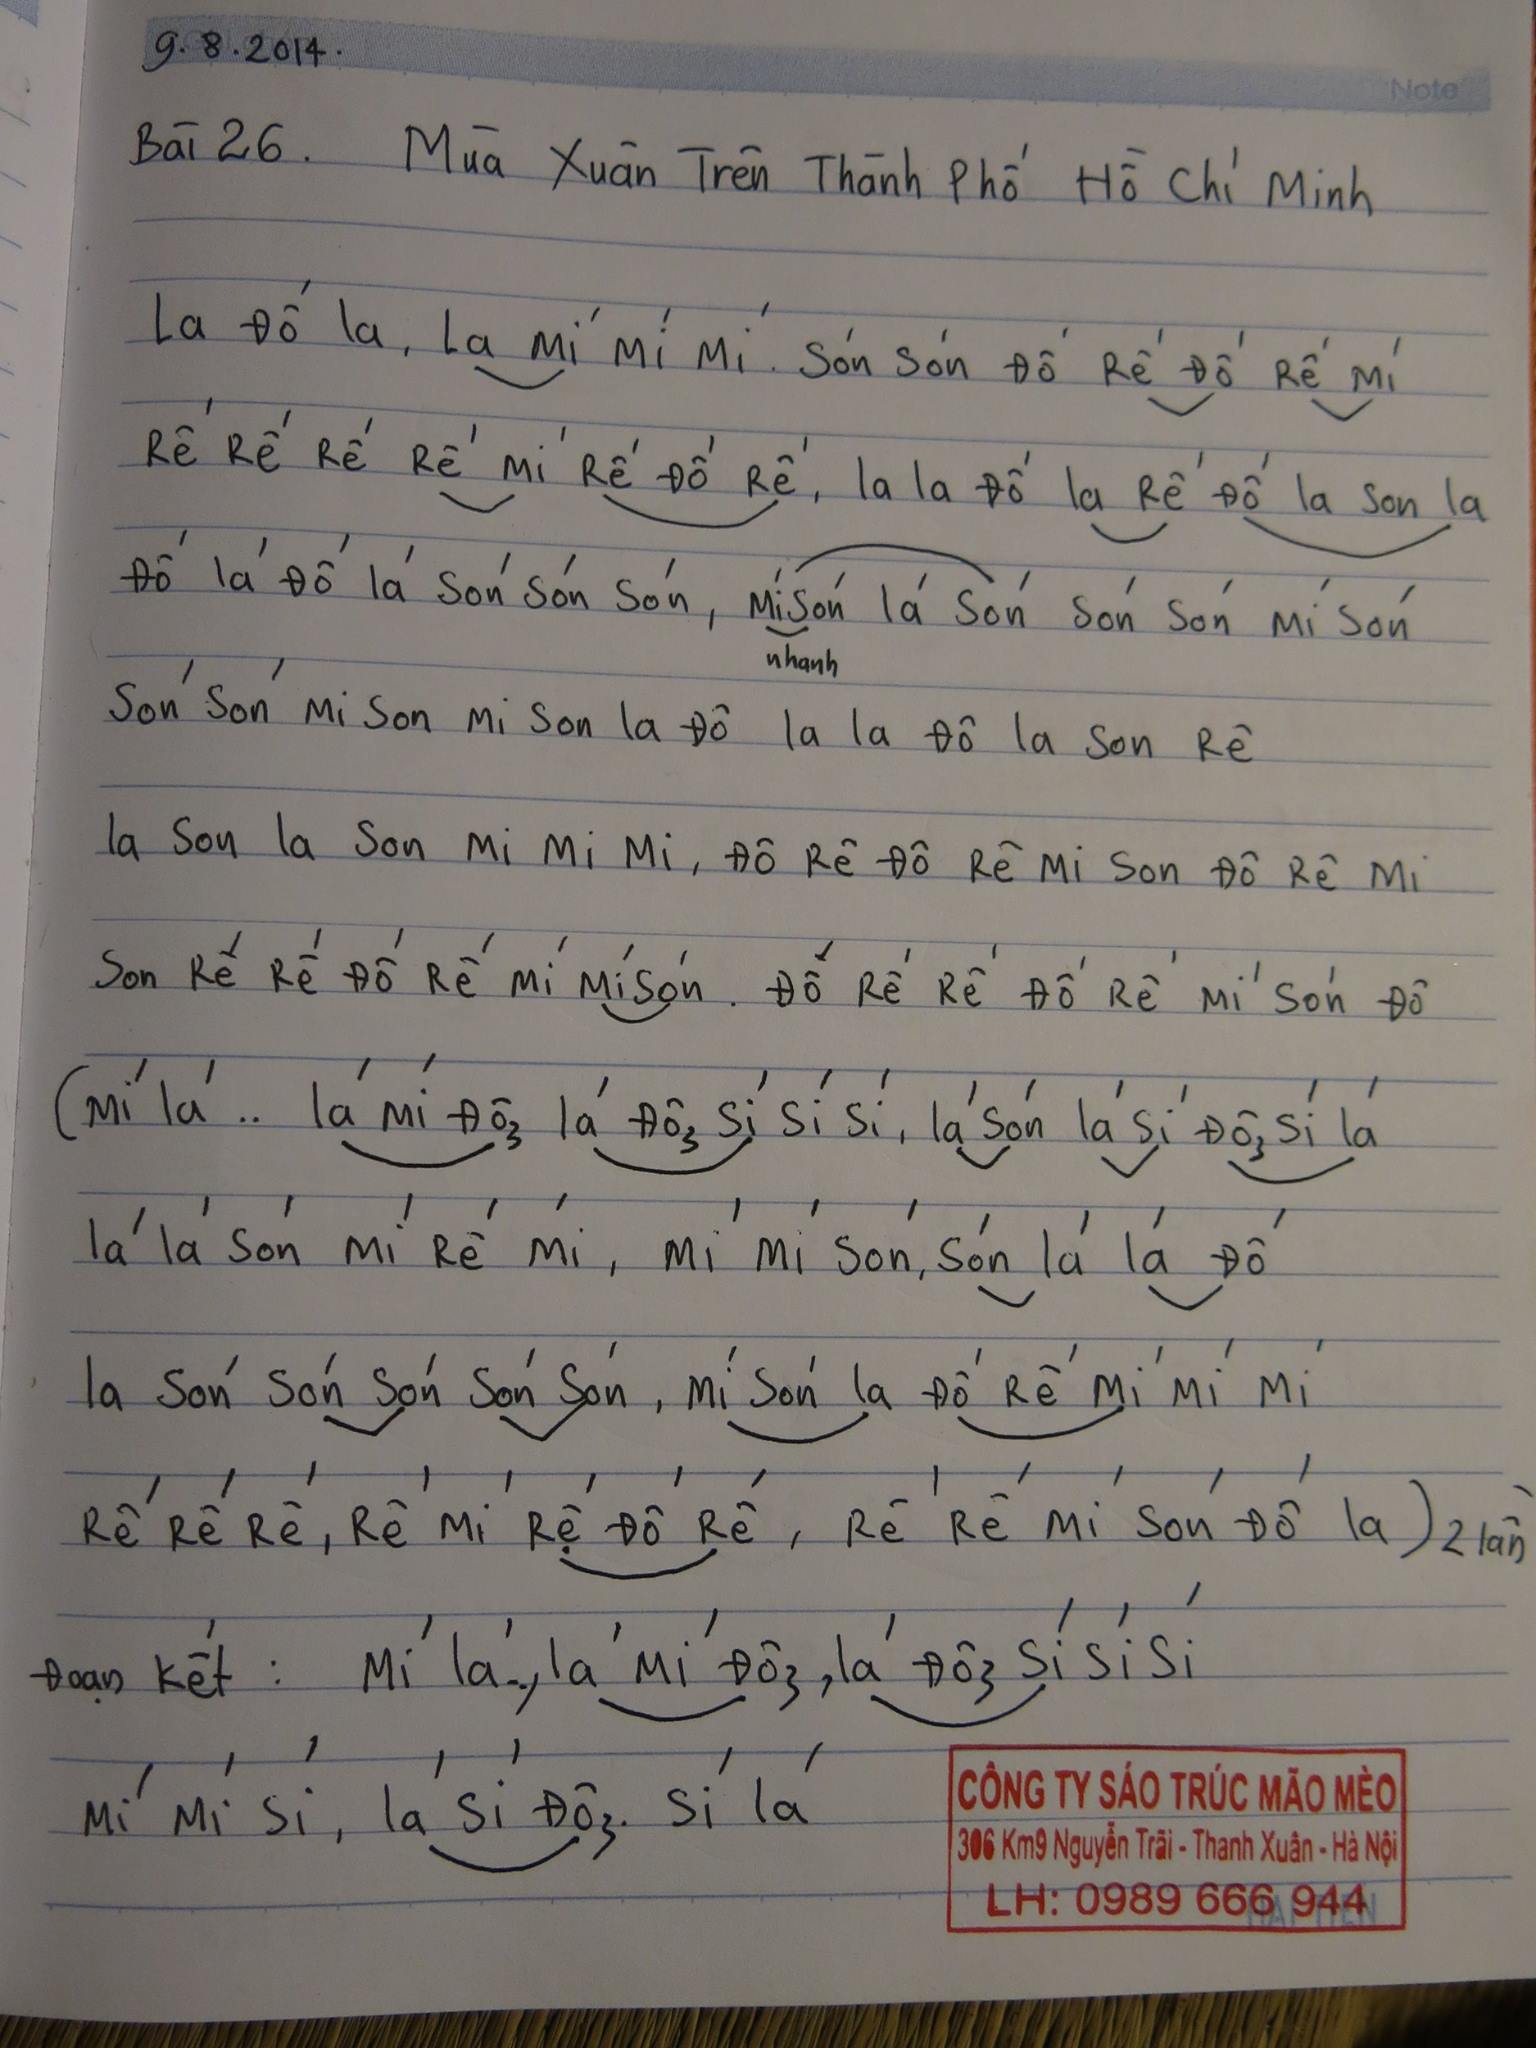 9.8.2014.
Note
Bài 26. Mùa Xuân Trên Thành Phố Hồ Chí Minh
La Đố la, La Mí Mí Mí. Són Són Đố Rế Đố Rế Mí
Rế Rế Rế Rế Mí Rế Đố Rế, la la Đố la Rế Đố la Son la
Đố lá Đố lá Són Són Són, Mí Són lá Són Són Són Mí Són
nhanh
Són Són Mi Son Mi Son la Đô la la Đô la Son Rê
la Son la Son Mi Mi Mi, Đô Rê Đô Rê Mi Son Đô Rê Mi
Son Rế Rế Đố Rế Mí Mí Són. Đố Rế Rế Đố Rế Mí Són Đô
(Mí lá .. lá Mí Đô3 lá Đô3 Sí Sí Sí, lá Són lá Sí Đô3 Sí lá
lá lá Són Mí Rế Mí, Mí Mí Són, Són lá lá Đố
la Són Són Són Són Són, Mí Són la Đố Rế Mí Mí Mí
Rế Rế Rế, Rế Mí Rế Đố Rế, Rế Rế Mí Són Đố la) 2 lần
Đoạn Kết : Mí lá.., lá Mí Đô3, lá Đô3 Sí Sí Sí
Mí Mí Sí, lá Sí Đô3. Sí lá
CÔNG TY SÁO TRÚC MÃO MÈO
306 Km9 Nguyễn Trãi - Thanh Xuân - Hà Nội
LH: 0989 666 944